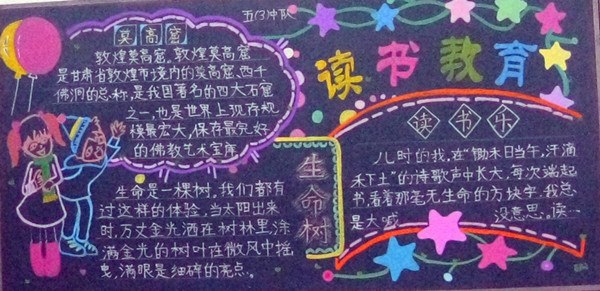 五(3)中队
莫高窟
敦煌莫高窟,敦煌莫高窟
是甘肃省敦煌市境内的莫高窟、西千
佛洞的总称,是我国著名的四大石窟
之一,也是世界上现存规
模最宏大,保存最完好
的佛教艺术宝库
读书教育
读书乐
儿时的我,在“锄禾日当午,汗滴
禾下土”的诗歌声中长大,每次端起
书,看着那毫无生命的方块字,我总
是大喊 没意思,读…
生命树
生命是一棵树,我们都有
过这样的体验,当太阳出来
时,万丈金光洒在树林里,涂
满金光的树叶在微风中摇
曳,满眼是细碎的亮点。